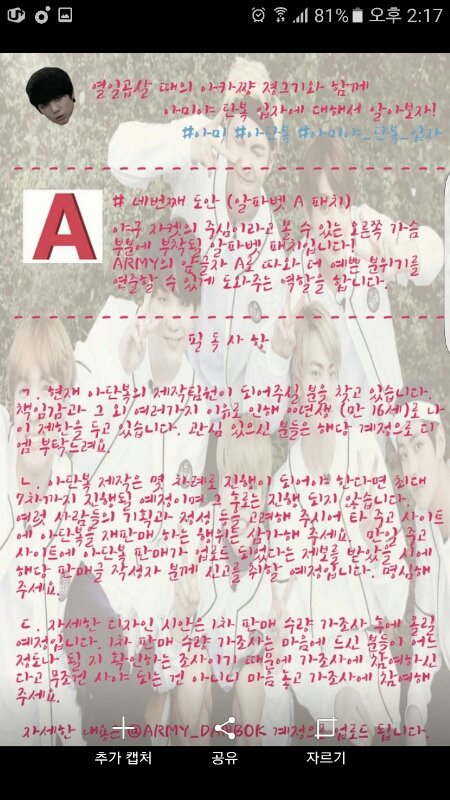 81% 오후 2:17
열일곱살 때의 아카쨩 정그기와 함께
아미야 단복 입자에 대해서 알아보자!
#아미 #아단복 #아미야_단복_입자
A
# 네번째 도안 (알파벳 A 패치)
야구 자켓의 중심이라고 볼 수 있는 오른쪽 가슴
부분에 부착될 알파벳 패치입니다!
ARMY의 앞글자 A로 따와 더 예쁜 분위기를
연출할 수 있게 도와주는 역할을 합니다.
필독사항
ㄱ. 현재 아단복의 제작팀원이 되어주실 분을 찾고 있습니다.
책임감과 그 외 여러가지 이유로 인해 00년생 (만 16세)로 나
이 제한을 두고 있습니다. 관심 있으신 분들은 해당 계정으로 디
엠 부탁드려요.
ㄴ. 아단복 제작은 몇 차례로 진행이 되어야 한다면 최대
7차까지 진행될 예정이며 그 후로는 진행 되지 않습니다.
여럿 사람들의 기획과 정성 등을 고려해 주시어 타 중고 사이트
에 아단복을 재판매 하는 행위는 삼가해 주세요. 만일 중고
사이트에 아단복 판매가 업로드 되었다는 제보를 받았을 시에
해당 판매글 작성자 분께 신고를 취할 예정입니다. 명심해
주세요.
ㄷ. 자세한 디자인 시안은 1차 판매 수량 가조사 중에 올릴
예정입니다. 1차 판매 수량 가조사는 마음에 드신 분들이 어느
정도나 될 지 확인하는 조사이기 때문에 가조사에 참여하신
다고 무조건 사야 되는 건 아니니 마음 놓고 가조사에 참여해
주세요.
자세한 내용은 @ARMY_DANBOK 계정으로 업로드 됩니다.
추가 캡처 공유 자르기